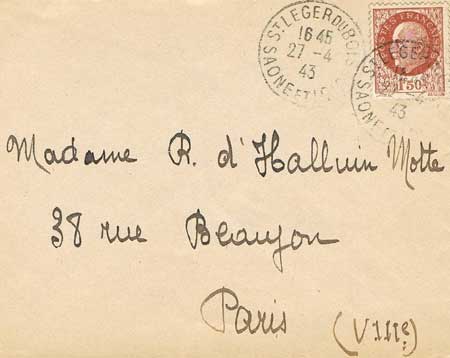 ST LEGER DU BOIS
16 45
27 -4
43
SAONE ET L
POSTES FRANÇAISES
1F50
ST LEGER
-4
43
SAONE ET
Madame R. d'Halluin Motte
38 rue Beaujon
Paris (VIIIe)